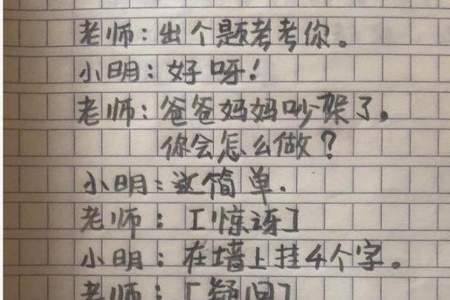 老师：出个题考考你。
小明：好呀！
老师：爸爸妈妈吵架了，
你会怎么做？
小明：这简单．
老师：［惊讶］
小明：在墙上挂4个字。
老师：［疑问］